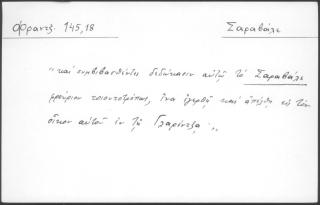 Φραντζ. 145,18
Σαραβάλε
"καὶ συμβιβασθέντες δεδώκασιν αὐτῷ τὸ Σαραβάλε
φρούριον τοιουτοτρόπως, ἵνα ἐγερθῇ καὶ ἀπέλθῃ εἰς τὸν
οἶκον αὐτοῦ ἐν τῇ Γλαρέντζᾳ"